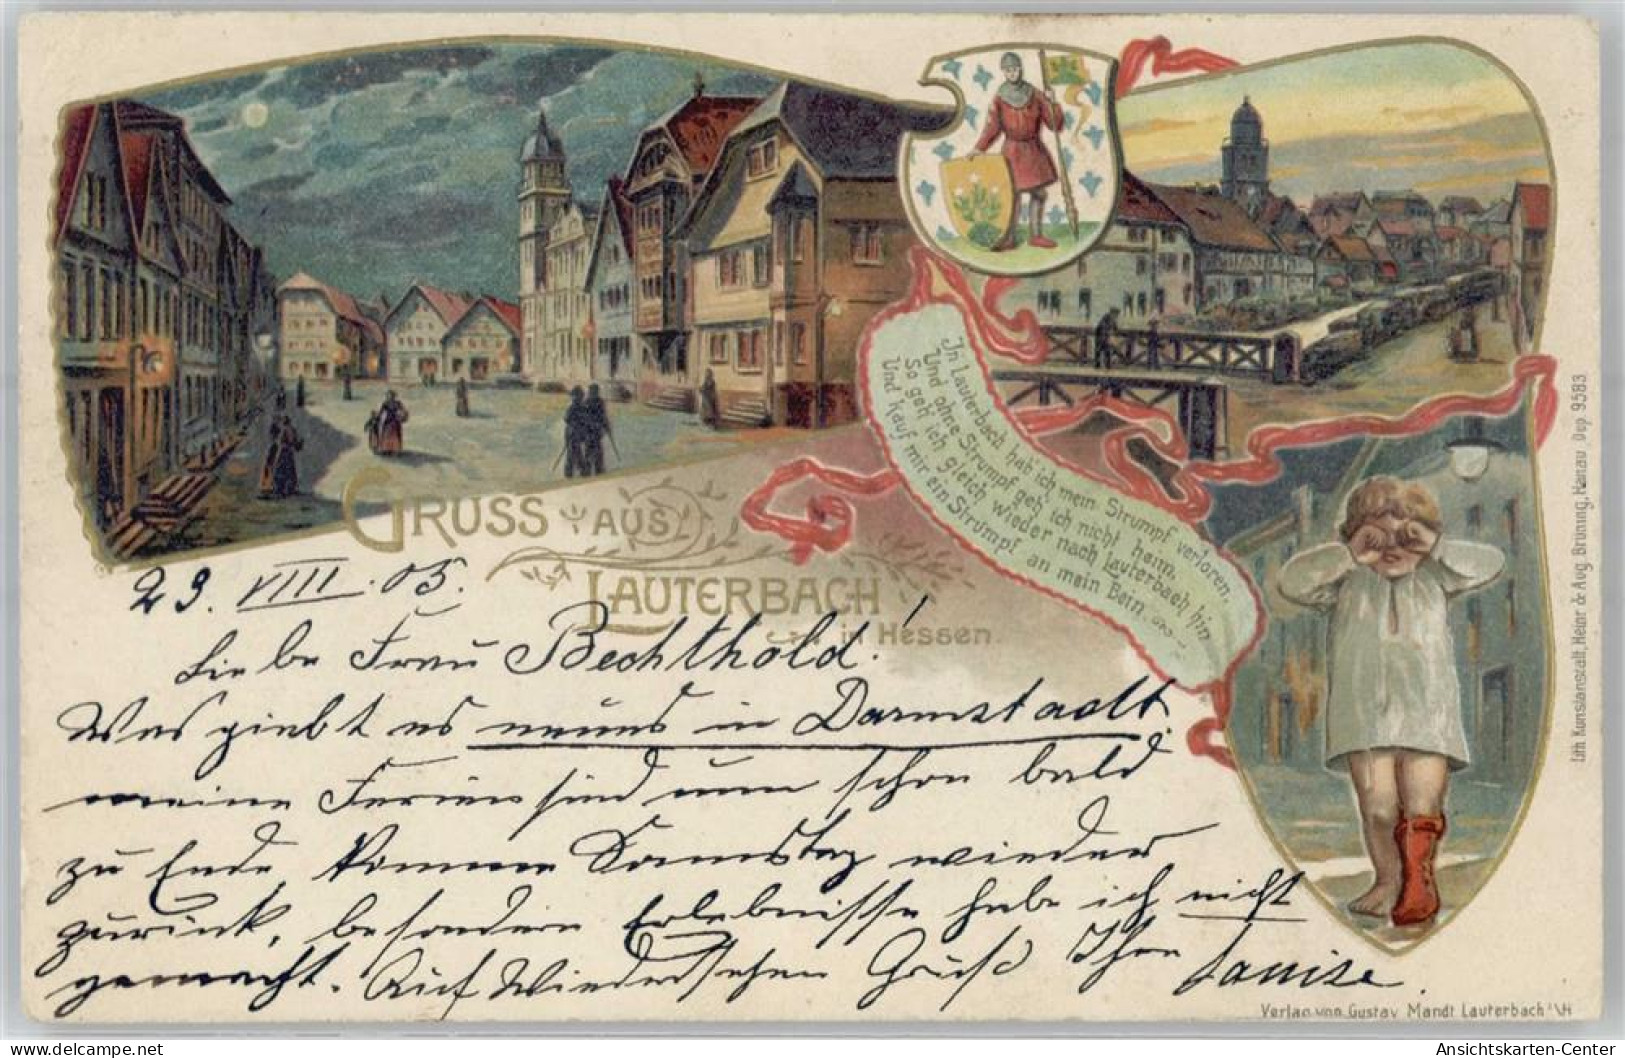 GRUSS AUS
LAUTERBACH
in Hessen.
In Lauterbach hab' ich mein Strumpf verloren,
Und ohne Strumpf geh' ich nicht heim,
So geh' ich gleich wieder nach Lauterbach hin
Und kauf mir ein Strumpf an mein Bein.
23. VIII. 05.
Liebe Frau Bechthold!
Was giebt es neues in Darmstadt.
meine Ferien sind nun schon bald
zu Ende, komme Samstag wieder
zurück, besondere Erlebnisse habe ich nicht
gemacht. Auf Wiedersehen Gruß Ihre Louise.
Lith. Kunstanstalt, Heinr. & Aug. Brüning, Hanau Dep. 9583
Verlag von Gustav Mandt Lauterbach i/H
delcampe.net
Ansichtskarten-Center